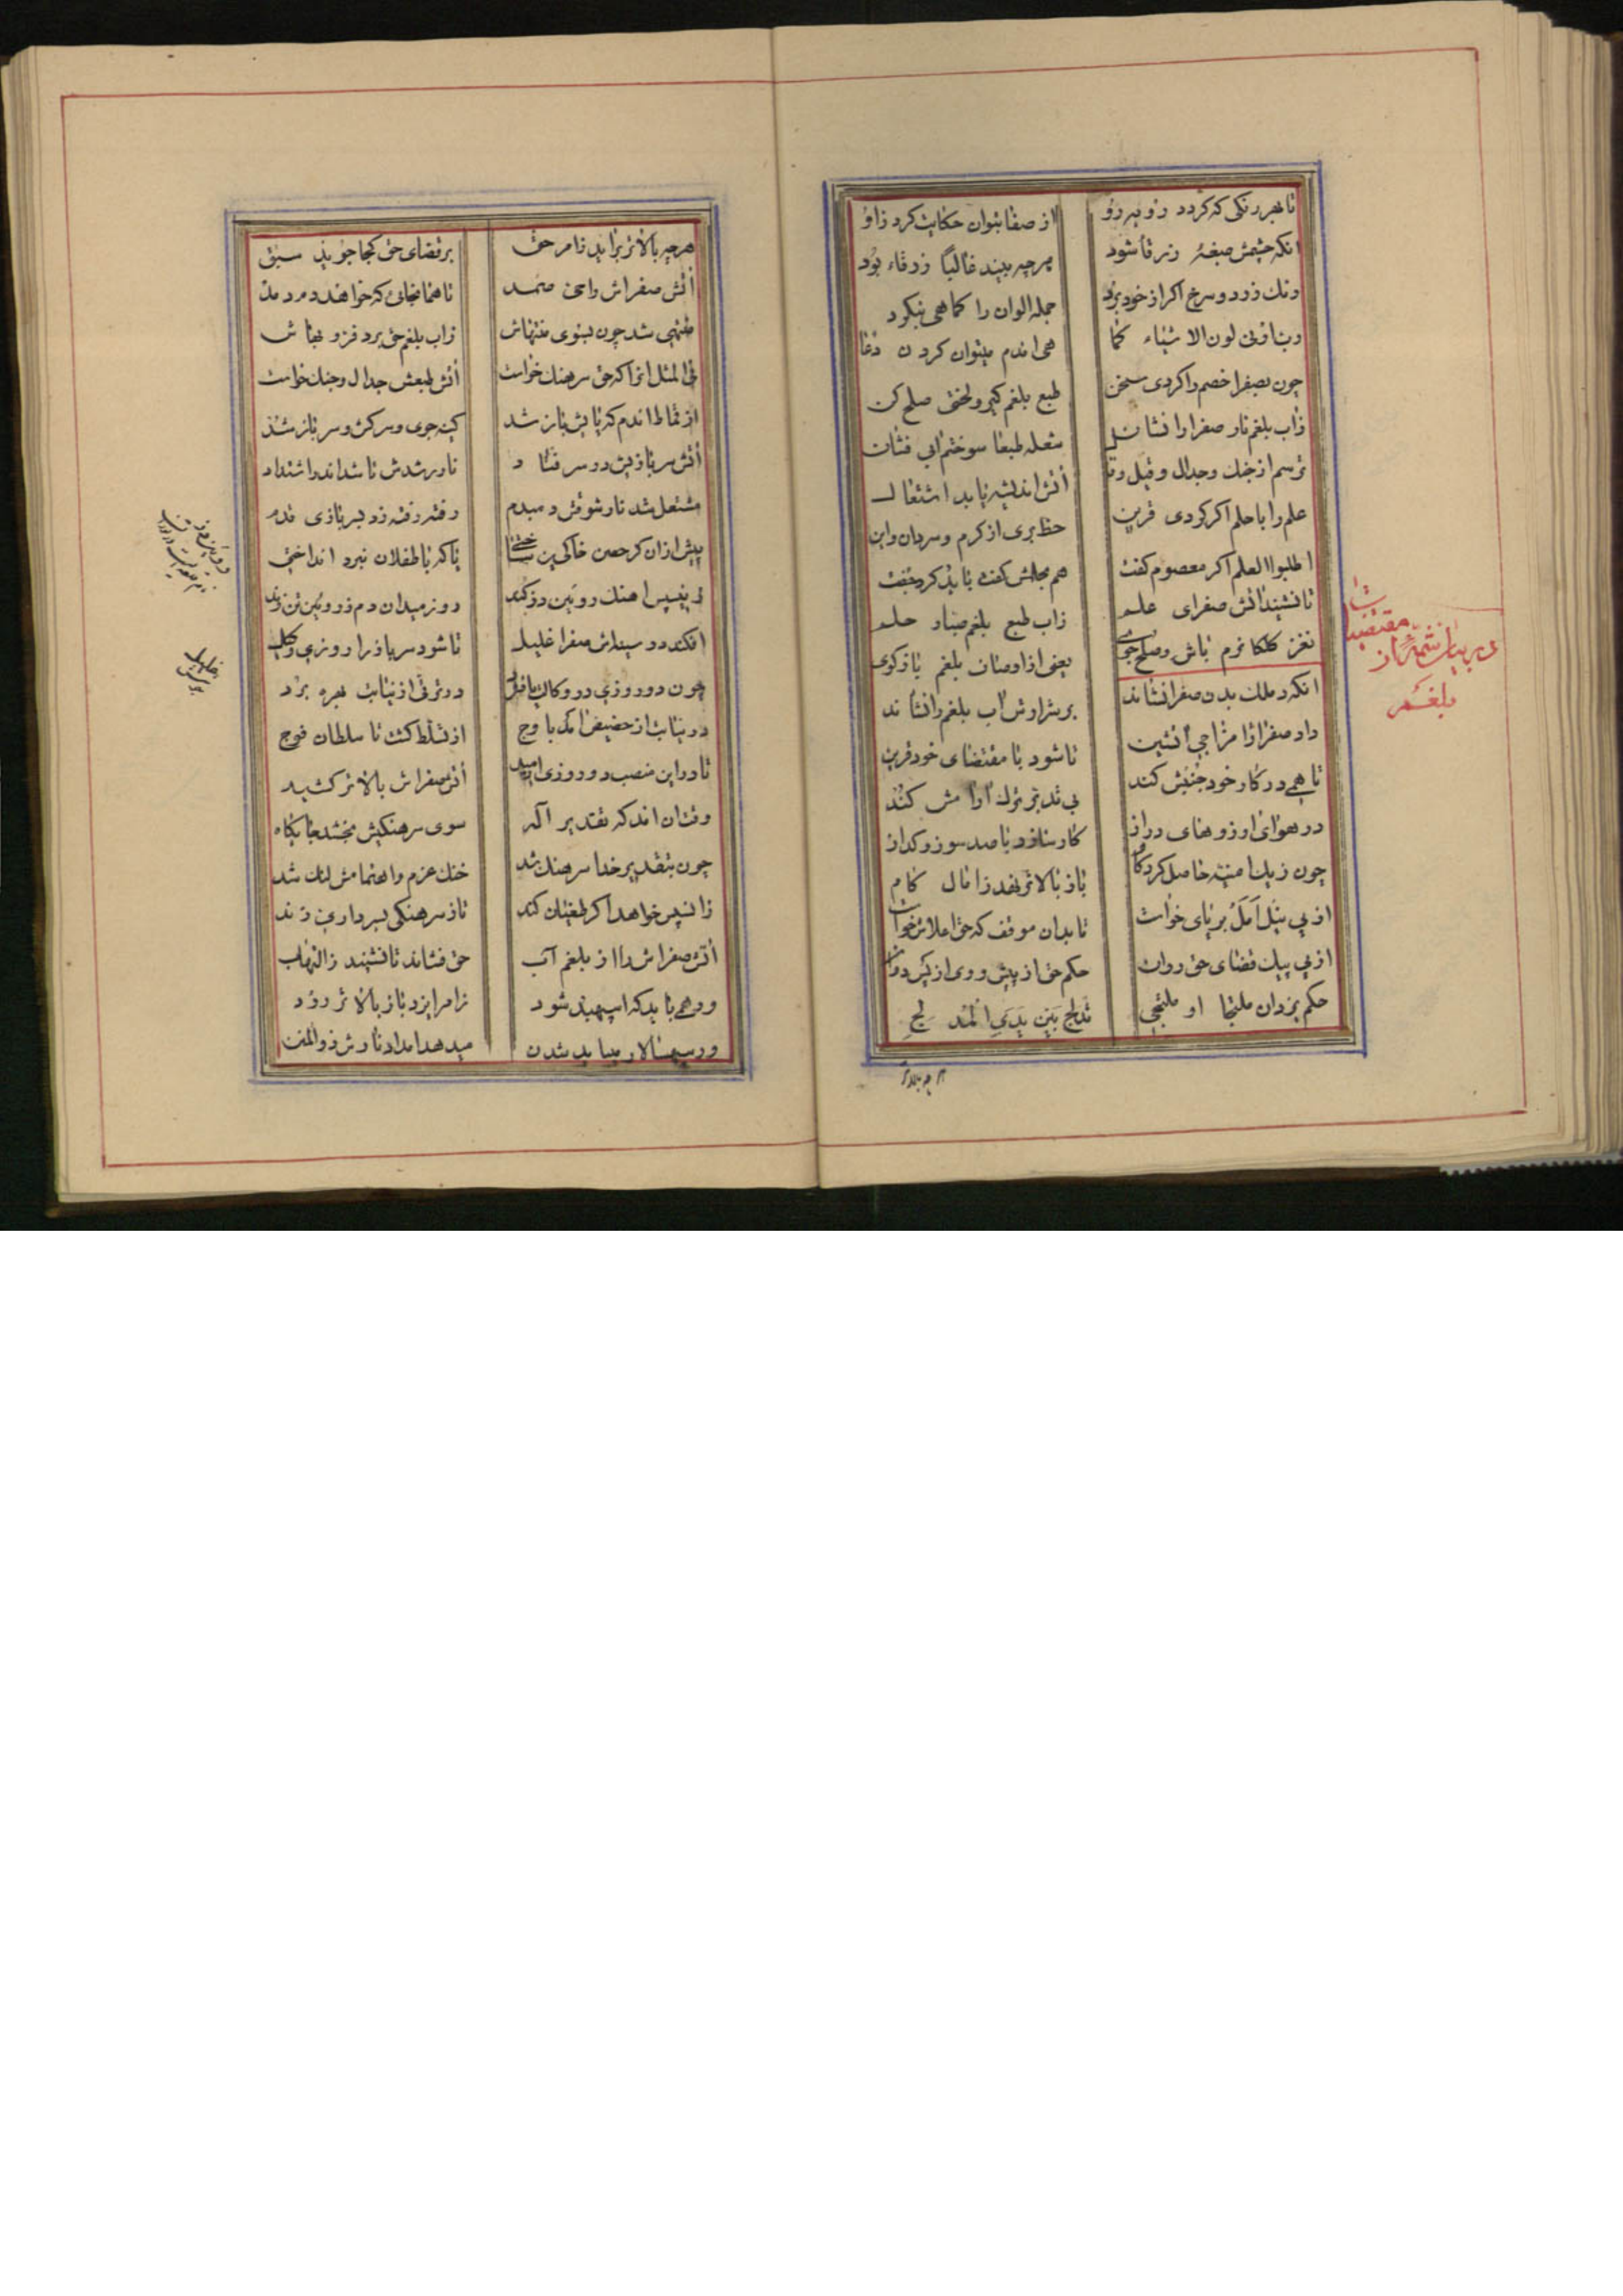 تا بهر رنگی که گردد روبرو از صفا بتوان حکایت کرد زاو
انکه چشمش صبغهٔ زرقا شود هرچه بیند غالباً زرقاء بود
رنک زرد و سرخ اکر از خود برد جمله الوان را کماهی بنکرد
رب ارنی لون الاشیاء کما هی اندم میتوان کردن دعا
چون بصفرا خصم را کردی سخن طبع بلغم کیر و لختی صلح کن
زاب بلغم نار صفرا را فشان شعله طبعا سوختم ابی فشان
ترسم از جنک و جدال و قیل و قا اتش اندیشه یابد اشتعال
علم را با حلم اکر کردی قرین حظ بری از کرم و سرد ان و این
اطلبوا العلم اکر معصوم کفت هم بحلمش کفت باید کرد جفت
تا نشیند اتش صفرای علم زاب طبع بلغم صبار حلم
نغز کلکا نرم باش و صلح جوی یعنی از اوصاف بلغم باز کوی
در بیان شمهٔ از مقتضیات بلغم
انکه در ملک بدن صفرا نشاند بر شرارش اب بلغم را فشاند
داد صفرا را مزاجی اتشین تا شود با مقتضای خود قرین
تا همی در کار خود جنبش کند بی تدبر ترک ارامش کند
در هوای ارزوهای دراز کار سازد با صد سوز و کداز
چون ز یک امنیه حاصل کرد کام باز بالاتر نهد زامال کام
از پی نیل امل بر پای خواست تا بدان موقف که حق اعلاش خواست
از پی پیک قضای حق روان حکم حق از پیش و وی از پس دوان
حکم یزدان ملتجا او ملتجی تدلج بین یدی المدلج
هرچه بالاتر
هرچه بالاتر براید زامر حق بر قضای حق کجا جوید سبق
اتش صفراش را حی صمد تا همانجائی که خواهد دمدمد
منتهی شد چون بسوی منتهاش زاب بلغم حق برد فر و بهاش
فی المثل انرا که حق سرهنک خواست اتش طبعش جدال و جنک خواست
از قماط اندم که پایش باز شد کینه جوی و سرکش و سرباز شد
اتش سربازیش در سر فتاد نا ورشدش ناشد اندر اشتداد
مشتعل شد نار شوقش دمبدم رفته رفته زد بسربازی قدم
پیش ازان کز حصن خاکی پن ساختی پاکه با طفلان نبرد انداختی
زینپس اهنک روئین دز کند روز میدان دم ز روئین تن زند
افکند در سینه اش صفرا غلیل تا شود سرباز را روزی وکیل
چون دو روزی در وکالت یافت در ترقی از نیابت بهره برد
در نیابت از حضیض امد باوج از تسلط کشت تا سلطان فوج
تا در این منصب دو روزی ارمید اتش صفراش بالاتر کشید
وقت ان امد که تقدیر اله سوی سرهنکیش بخشد جایکاه
چون بتقدیر خدا سرهنک شد خنک عزم و اهتمامش لنک شد
زانپس خواهد اکر طغیان کند تا ز سرهنکی بسرداری زند
اتش صفراش را از بلغم آب حق فشاند تا نشیند زالتهاب
ور همی باید که اسپهبد شود زامر ایزد باز بالاتر رود
ور سپهسالار میباید شدن میدهد امداد نارش ذوالمنن